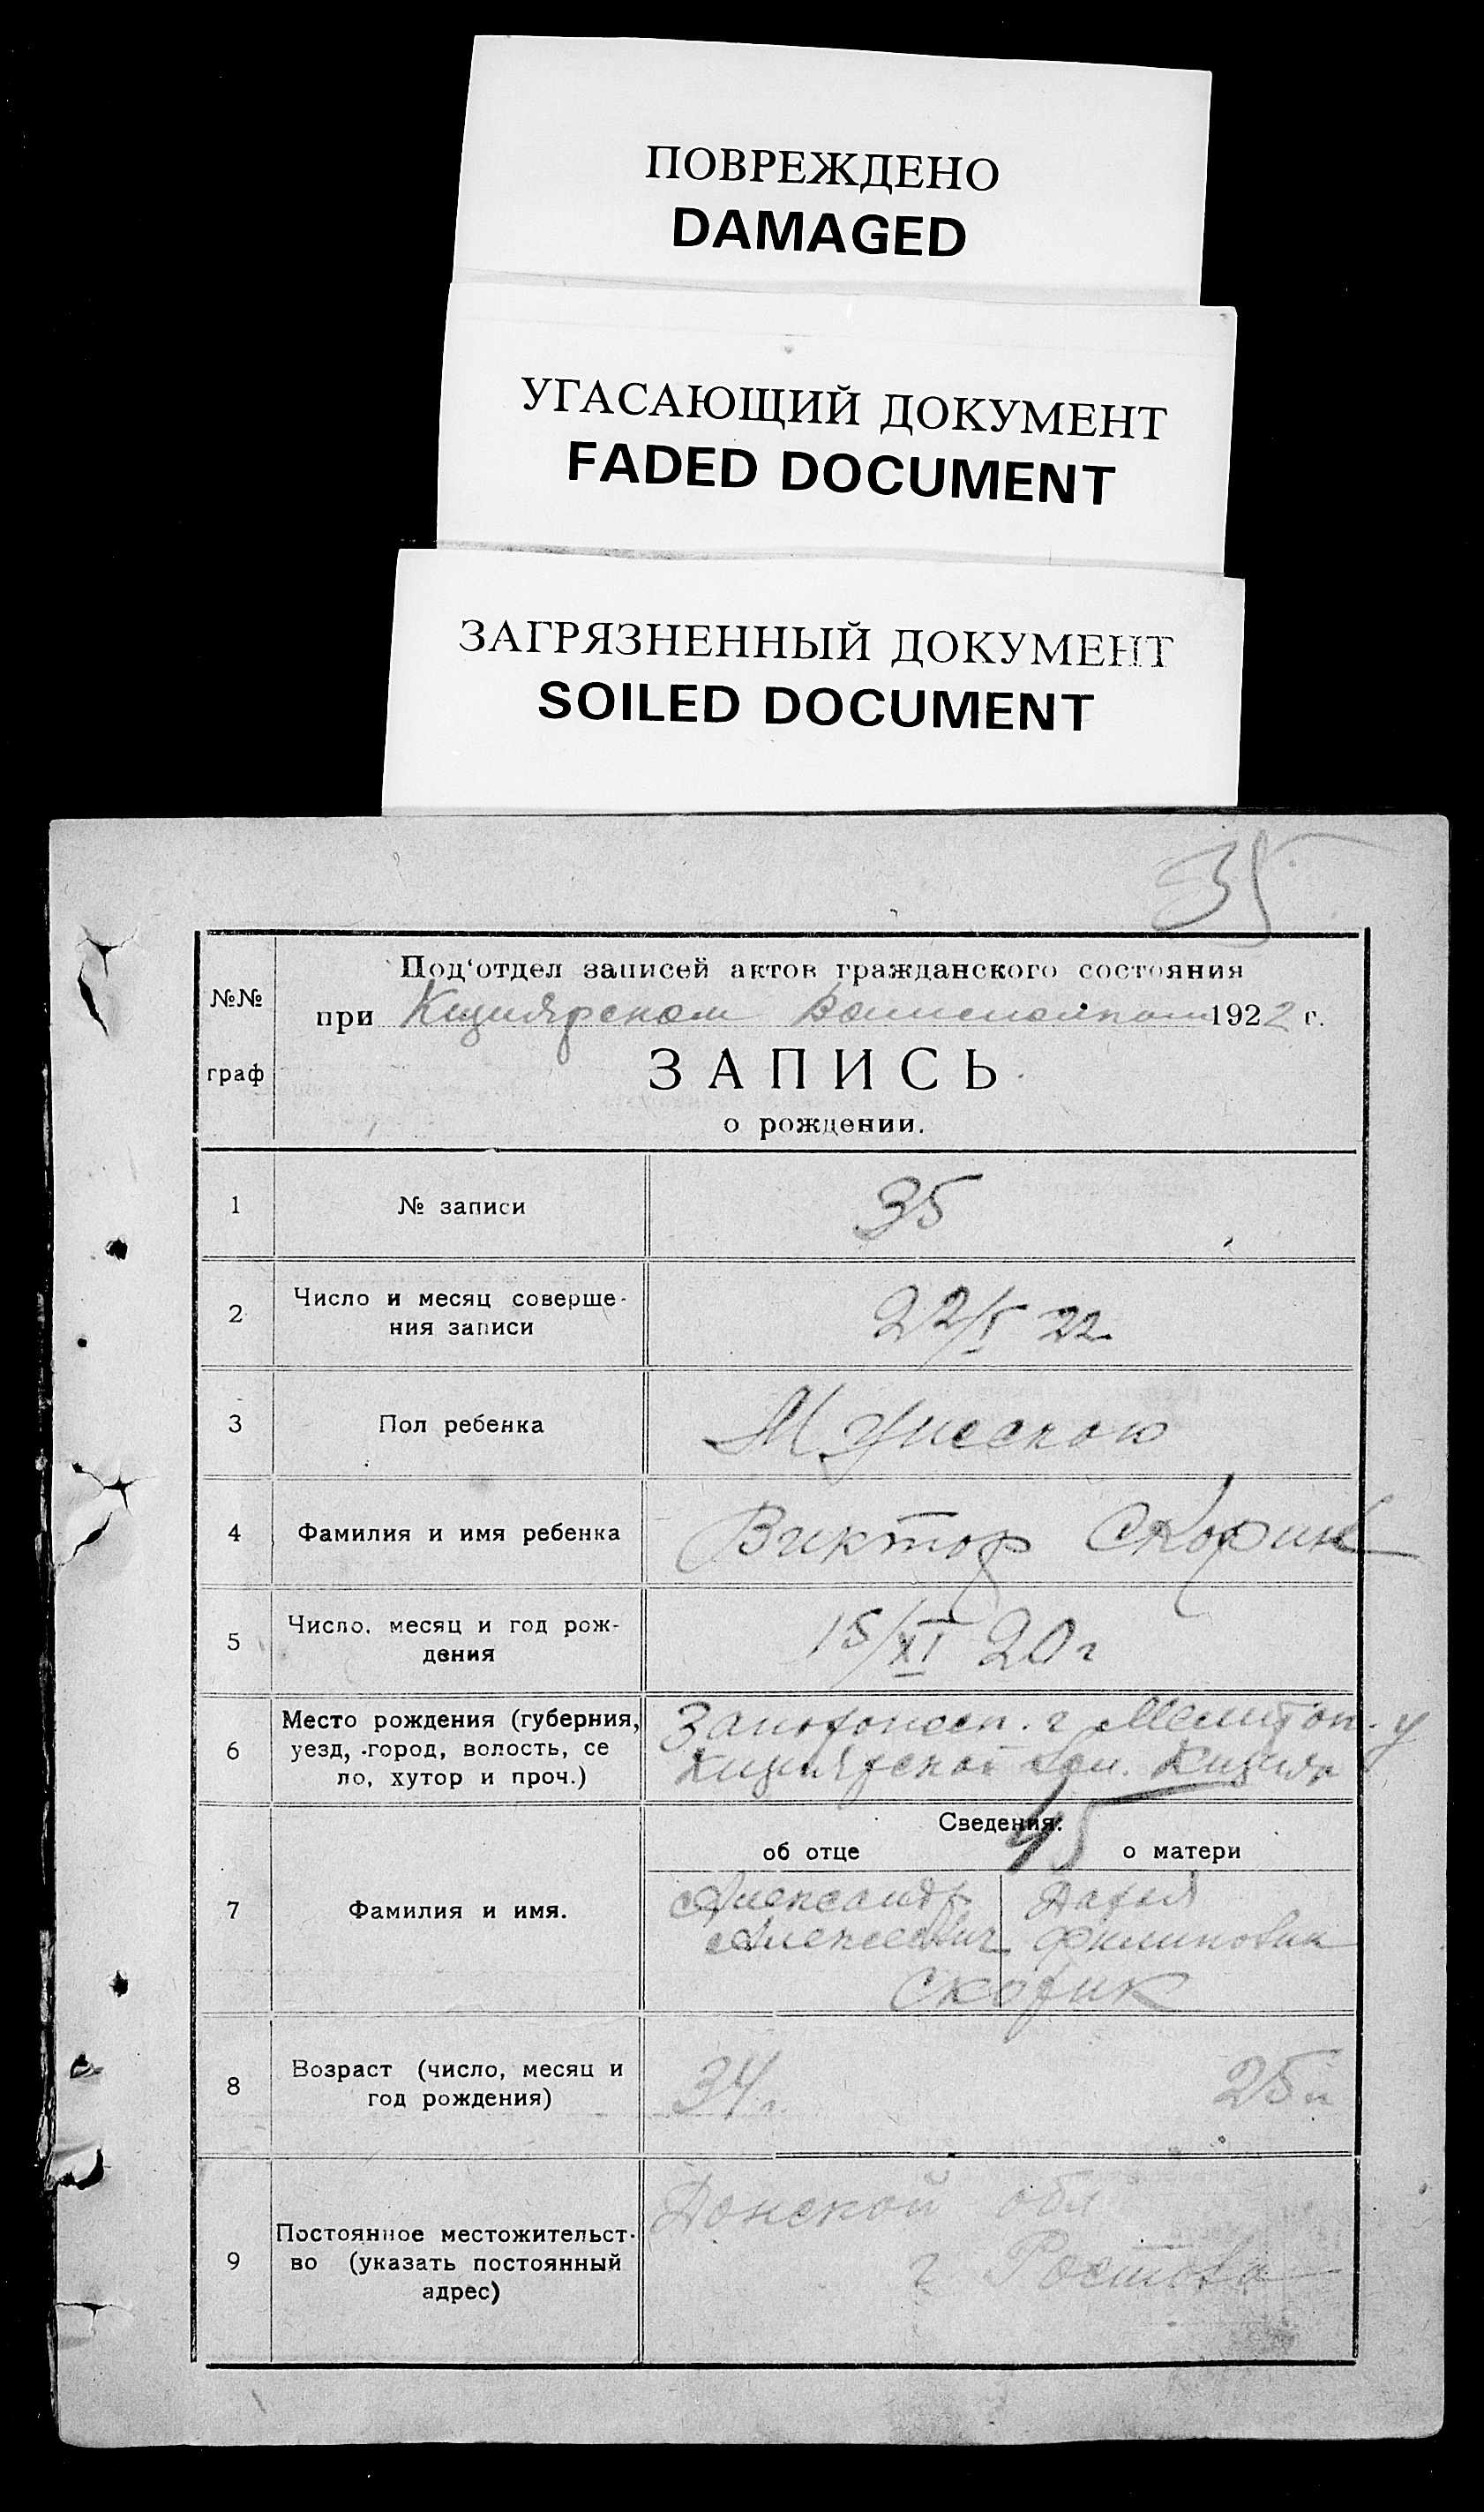 ПОВРЕЖДЕНО
DAMAGED
УГАСАЮЩИЙ ДОКУМЕНТ
FADED DOCUMENT
ЗАГРЯЗНЕННЫЙ ДОКУМЕНТ
SOILED DOCUMENT
35
№№
граф
Под'отдел записей актов гражданского состояния
при Кизиярском 1922 г.
ЗАПИСЬ
о рождении.
1 № записи 35
2 Число и месяц соверше-
ния записи
22/V 22
3 Пол ребенка Мужеского
4 Фамилия и имя ребенка Виктор Скорик
5 Число, месяц и год рож-
дения
15/XI 20 г
6 Место рождения (губерния,
уезд, город, волость, се
ло, хутор и проч.)
Запорожск. г Мелитоп. у
Кизиярской вол. Кизияр
45
Сведения:
об отце о матери
7 Фамилия и имя.
Александр Дарья
Алексеевич Филиповна
Скорик
8 Возраст (число, месяц и
год рождения)
34 г. 25 л
9 Постоянное местожительст-
во (указать постоянный
адрес)
Донской обл
г Ростова